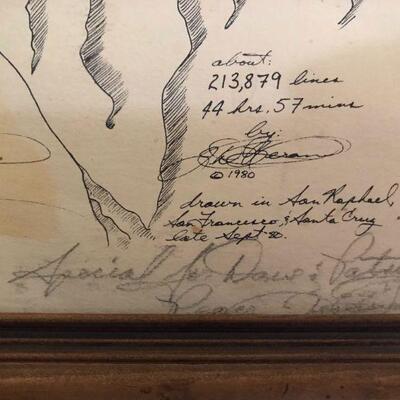 about:
213,879 lines
44 hrs, 57 mins
by:
© 1980
drawn in San Raphael,
San Francisco, & Santa Cruz
late Sept 80.
Special for Dave & Patsy
Peace